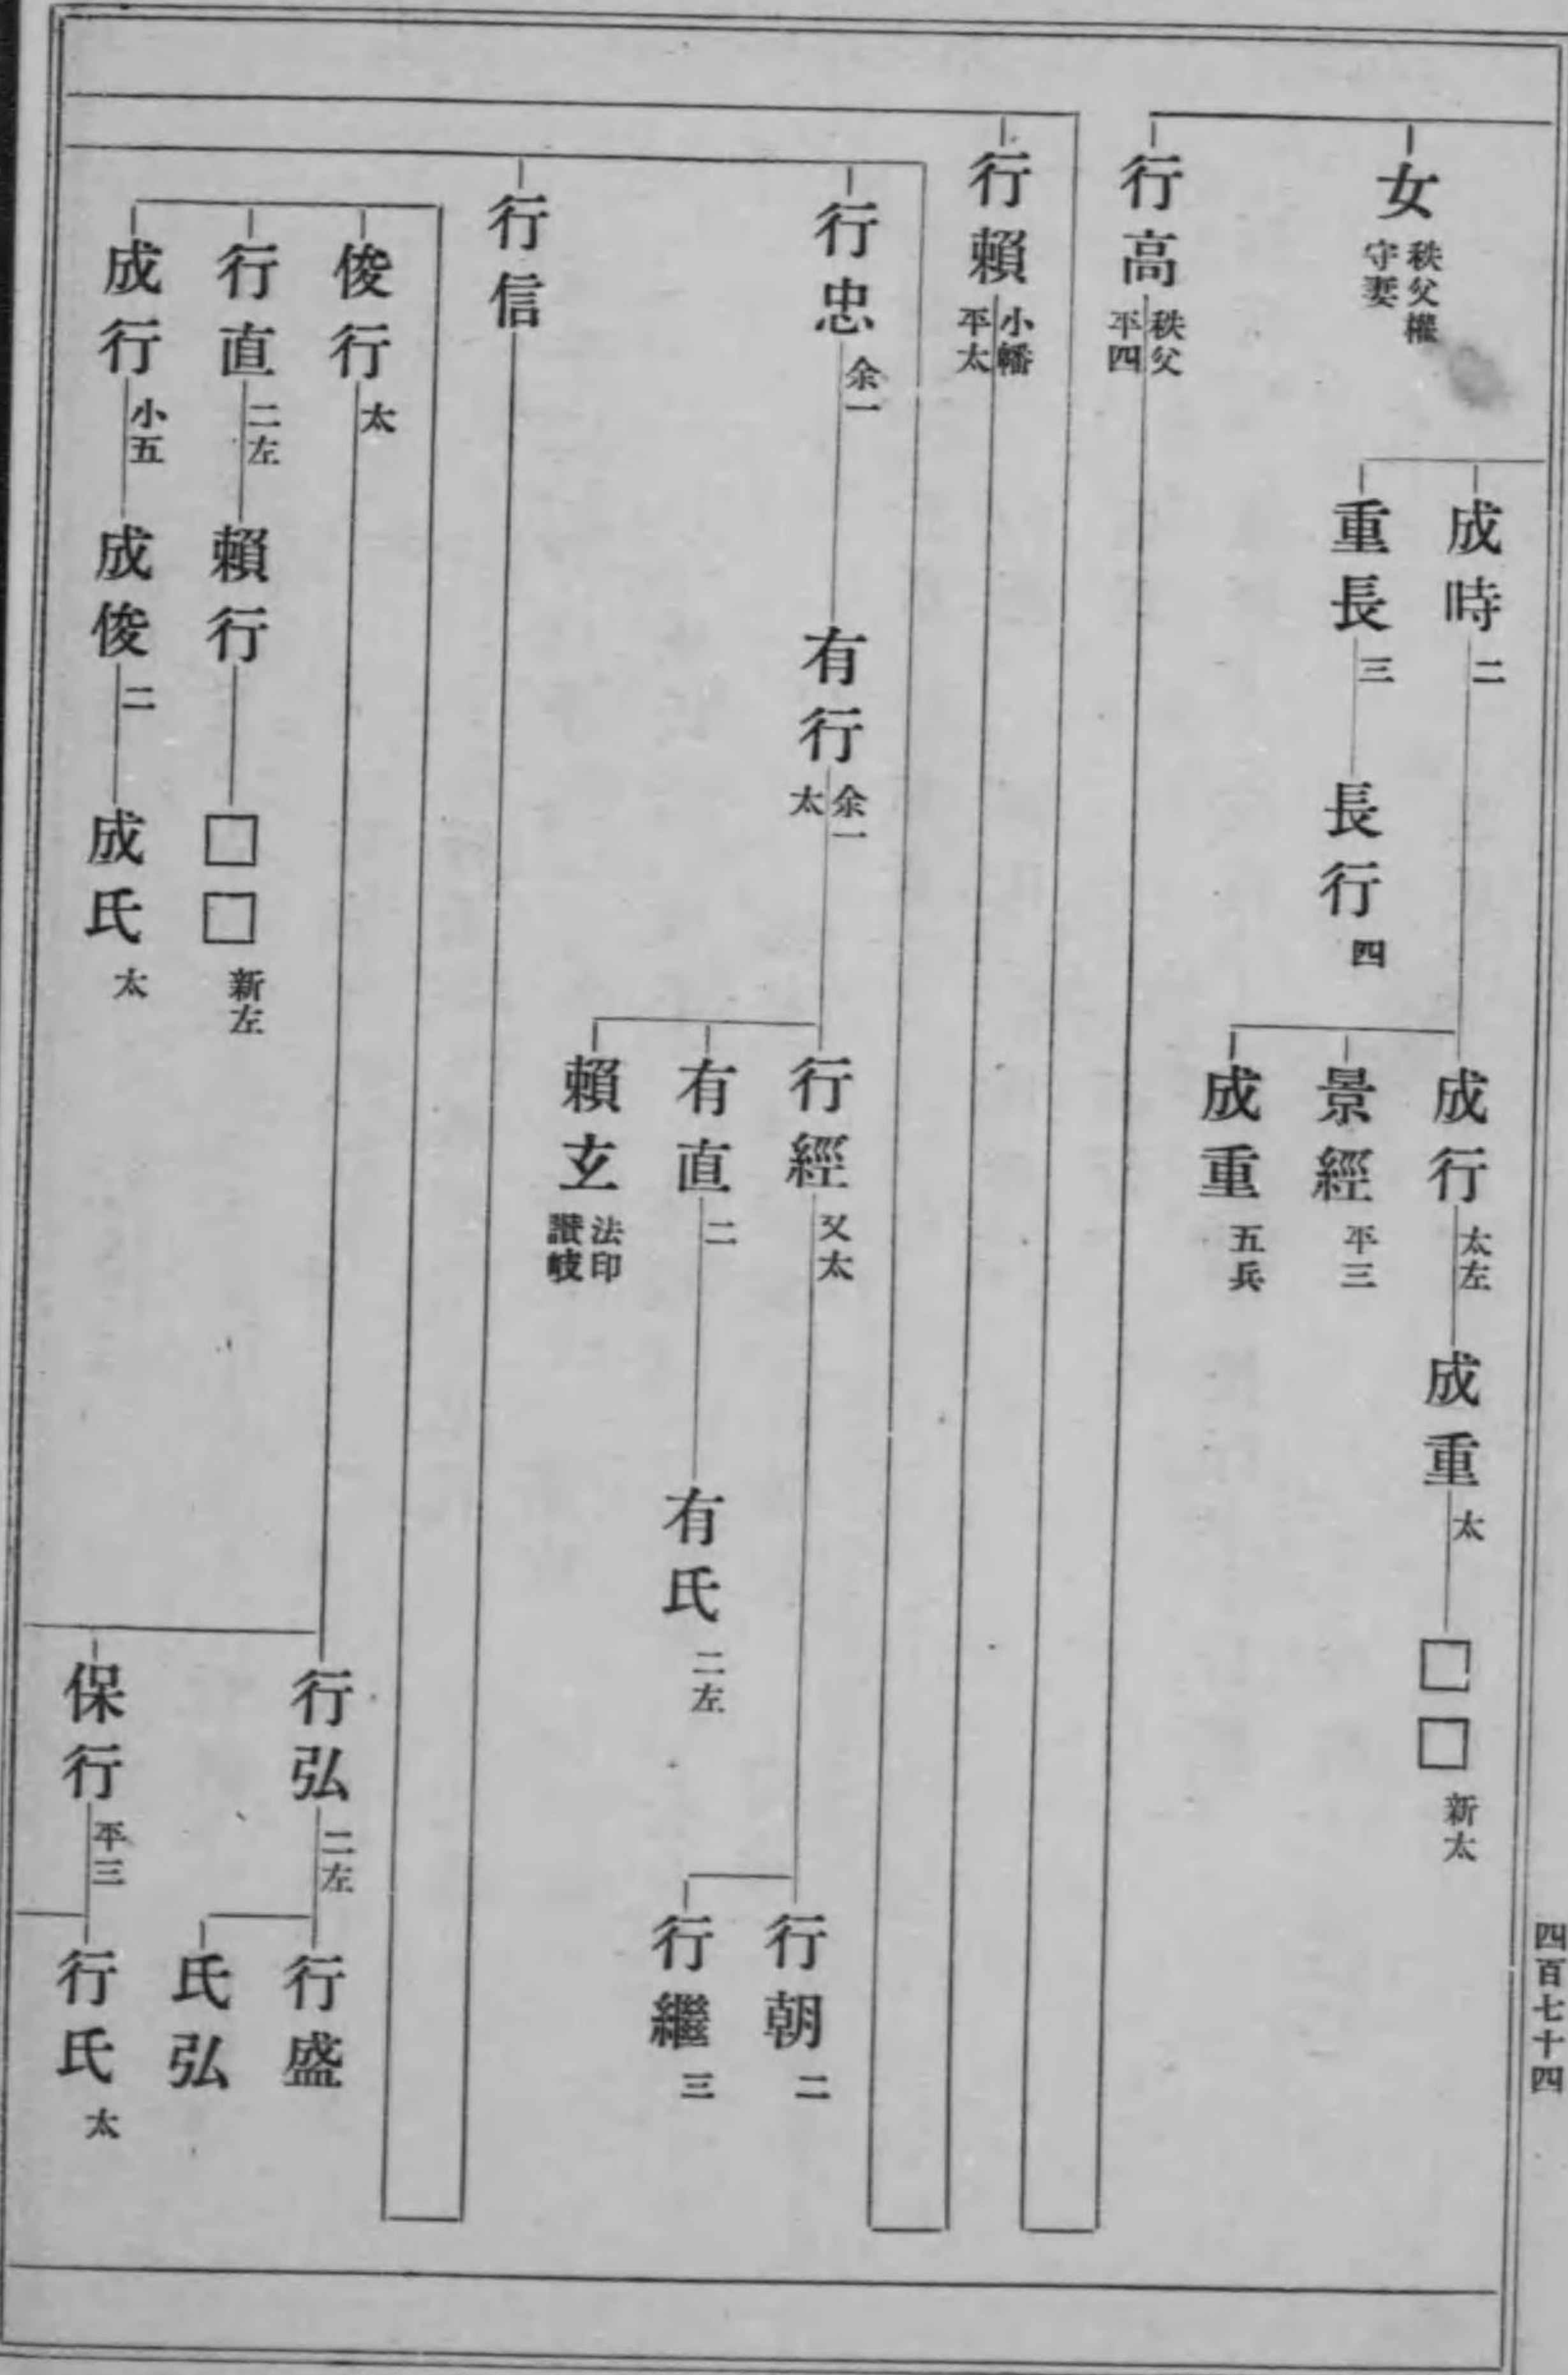 女 秩父權守妻
成時 二
成行 太左
成重 太
□□ 新太
景經 平三
成重 五兵
重長 三
長行 四
行高 秩父平四
行賴 小幡平太
行忠 余一
有行 余一太
行經 又太
行朝 二
行繼 三
有直 二
有氏 二左
賴玄 法印讃岐
行信
俊行 太
行弘 二左
行盛
氏弘
保行 平三
行氏 太
行直 二左
賴行
□□ 新左
成行 小五
成俊 二
成氏 太
四百七十四